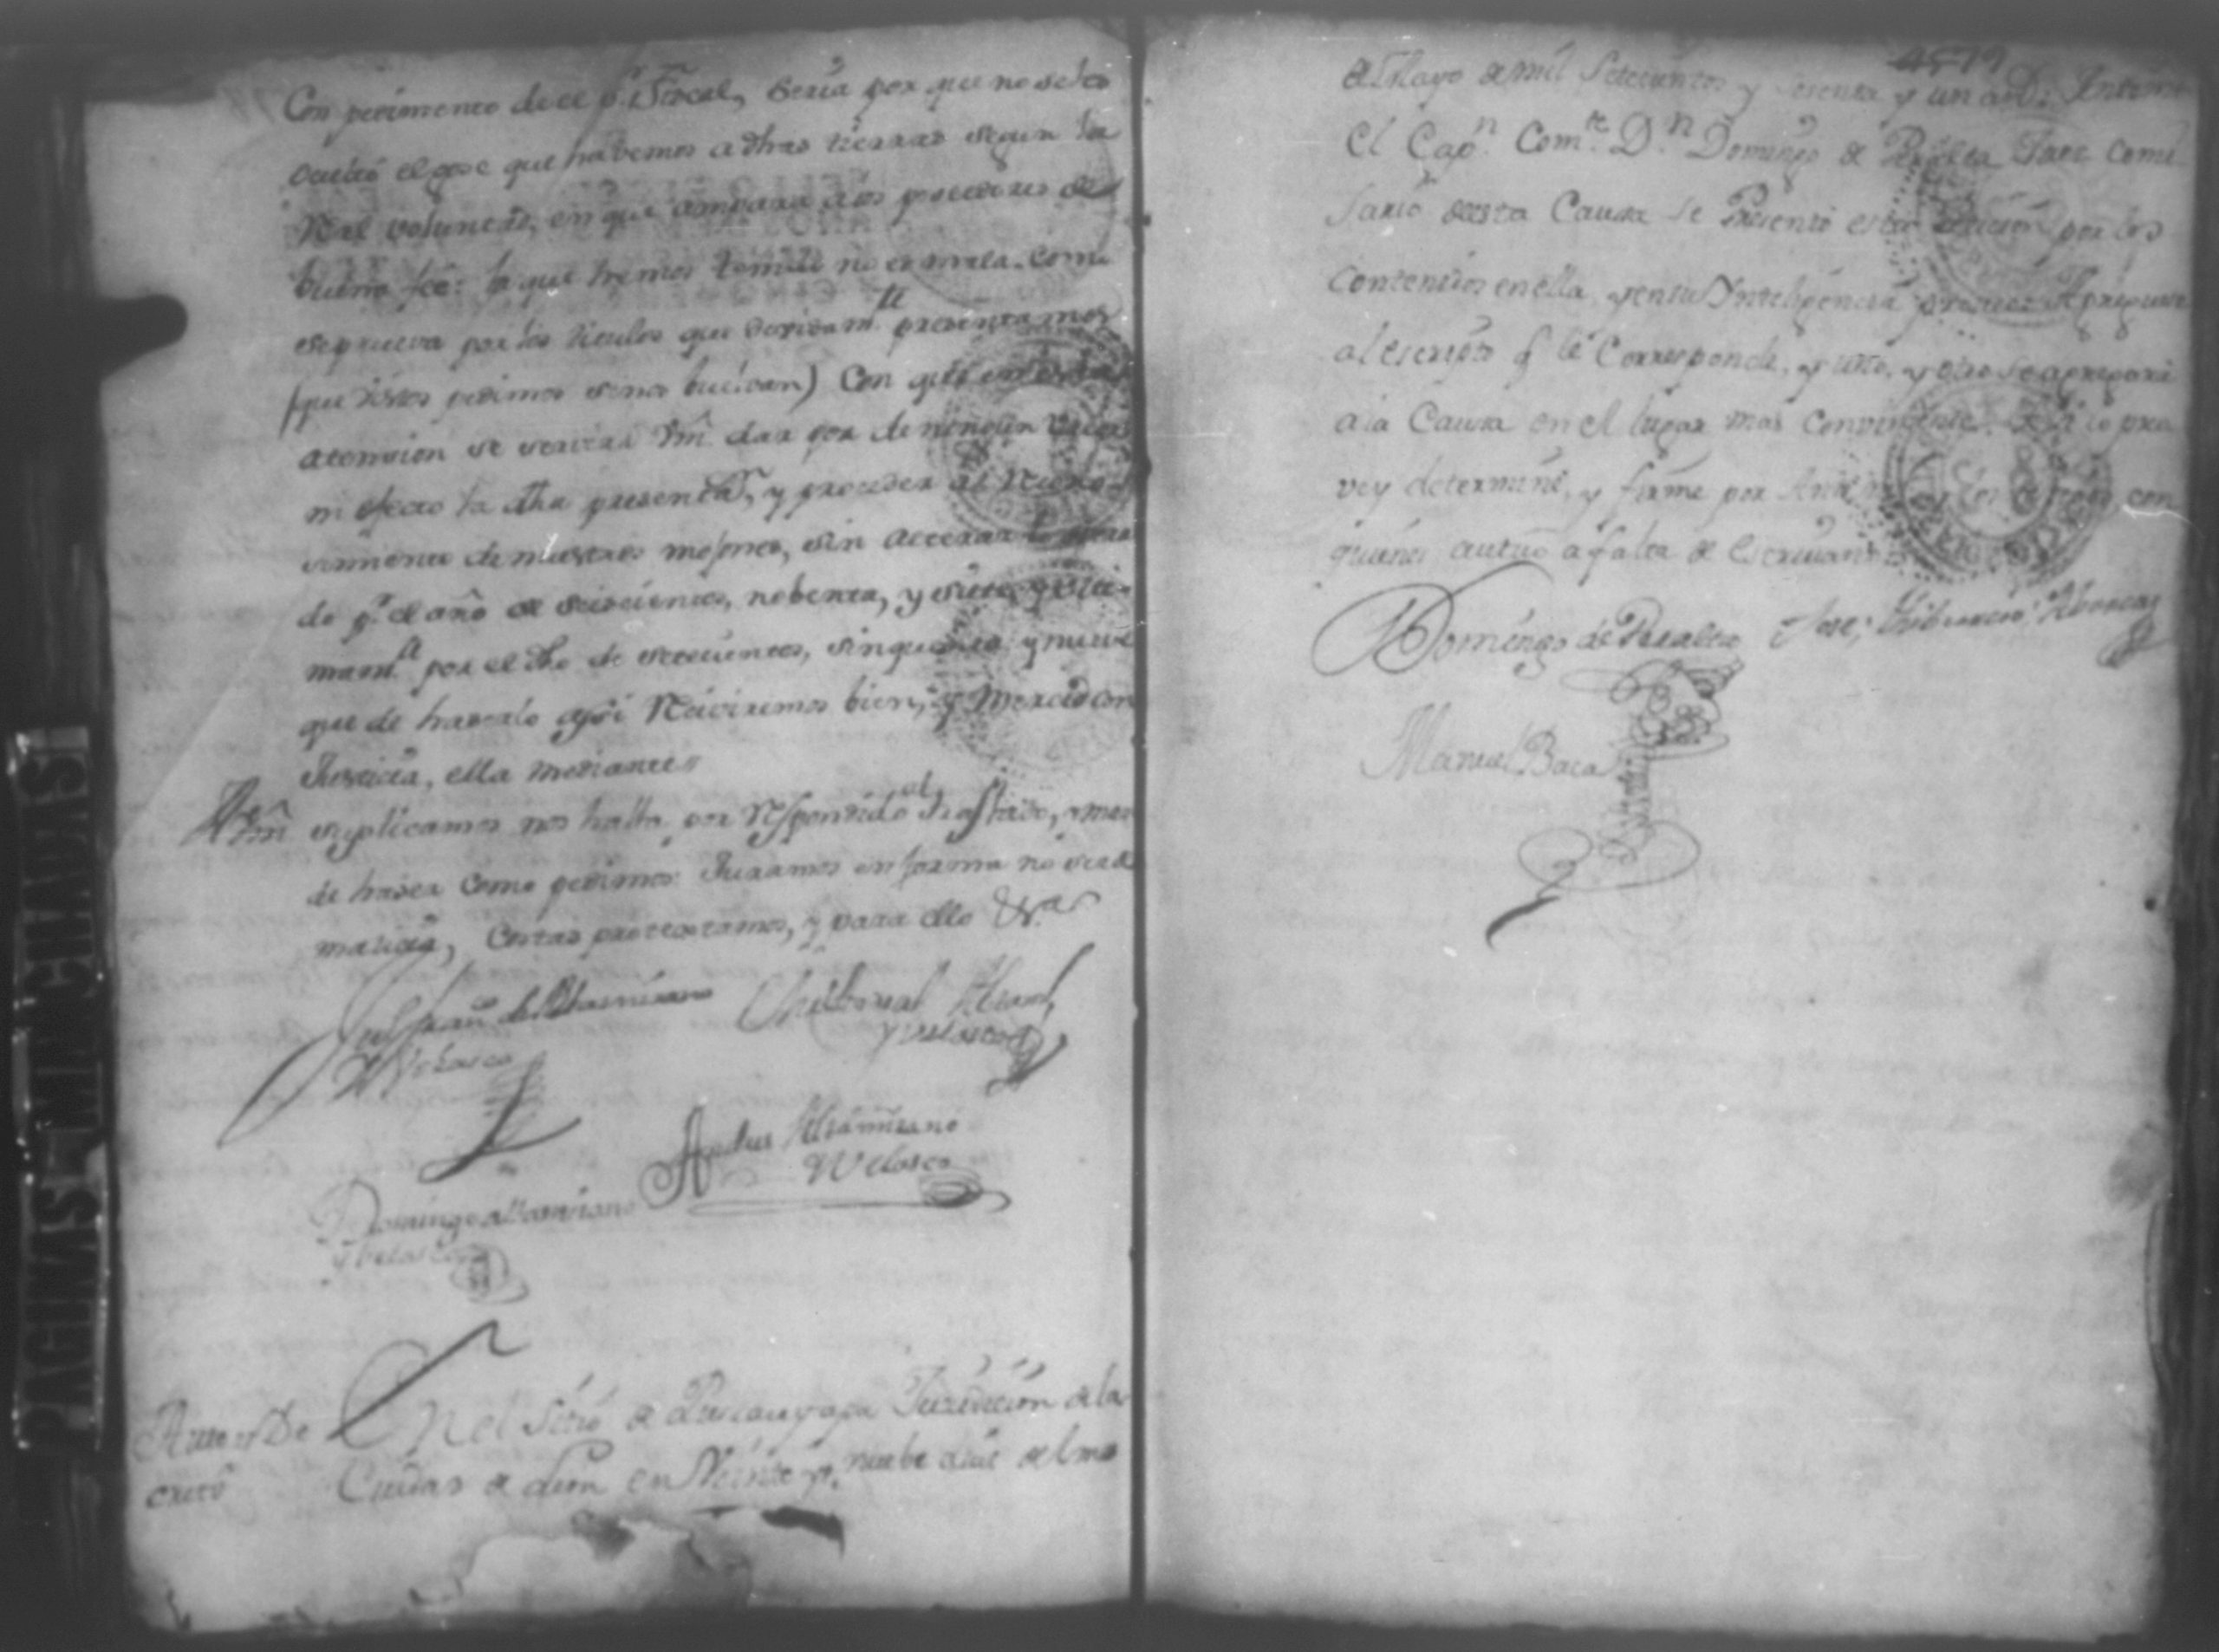 Con pedimento de el s.r Fiscal, seria por que no se les
oculto el gose que havemos a dhas tierras segun la
Real voluntad, en que ampara a los poseedores de
buena fee: la que hemos tenido no es mala. como
se prueva por los titulos que devidam.te presentamos
(que vistos pedimos se nos buelvan) Con
atension se servira Vm̃ dar por de ningun valor
ni efecto la dha presentaz.n, y proceder al recono-
simiento de nuestros mojones, sin alterar lo
do p.r el año de seiscientos, nobenta, y siete, y ulti-
mam.te por el dho de setecientos, sinquenta y nueve
que de haserlo assi Reciviremos bien, y Merced con
Justicia, ella mediante
A Vm̃ suplicamos nos halla por Respondido al traslado, y man
de haser como pedimos: Juramos en forma no ser de
malicia, Costas protestamos, y para ello &.a
Juan.co de Altamirano
y Velasco
Christoval Altam.o
y Velasco
Andres Altamirano
y Velasco
Domingo altamirano
y belasco
Auto y De
creto
En el Sitio de Jurisdicion de la
Ciudad de Leon en Veinte y nuebe dias del mes
4579
de Mayo de mil Setecientos y sesenta y un a.s Antemi
El Cap.n Com.te D.n Domingo de Peralta Juez Comi
sario desta Causa se Presentó esta peticion por los
Contenidos en ella, y en su Inteligencia
al escripto q̃ le Corresponde, y uno, y otro se
a la Causa en el lugar mas Conveniente. Assi lo pro
vey determiné, y firmé por Ante mi y los testigos con
quienes autuo a falta de Escruano
Domingo de Peralta
Jose Tiburcio
Manuel Baca
PAGINAS MANCHADAS